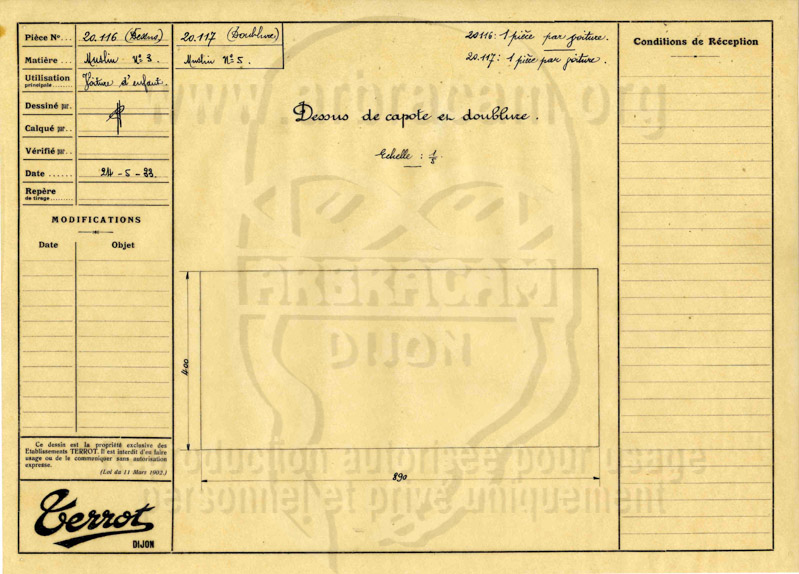 Pièce Nº... 20.116 (Dessus) 20.117 (Doublure)
20116: 1 pièce par voiture.
20.117: 1 pièce par voiture.
Matière .. Muslin Nº 3. Muslin Nº 5.
Utilisation
principale........ Voiture d'enfant.
Dessiné par.
Calqué par..
Vérifié par..
Date ...... 24-5-33
Repère
de tirage.........
MODIFICATIONS
Date Objet
Ce dessin est la propriété exclusive des
Etablissements TERROT. Il est interdit d'en faire
usage ou de le communiquer sans autorisation
expresse.
(Loi du 11 Mars 1902.)
Terrot
DIJON
Dessus de capote et doublure.
Echelle : 1/5.
400
890
Conditions de Réception
www.arbracam.org
ARBRACAM
DIJON
reproduction autorisée pour usage
personnel et privé uniquement